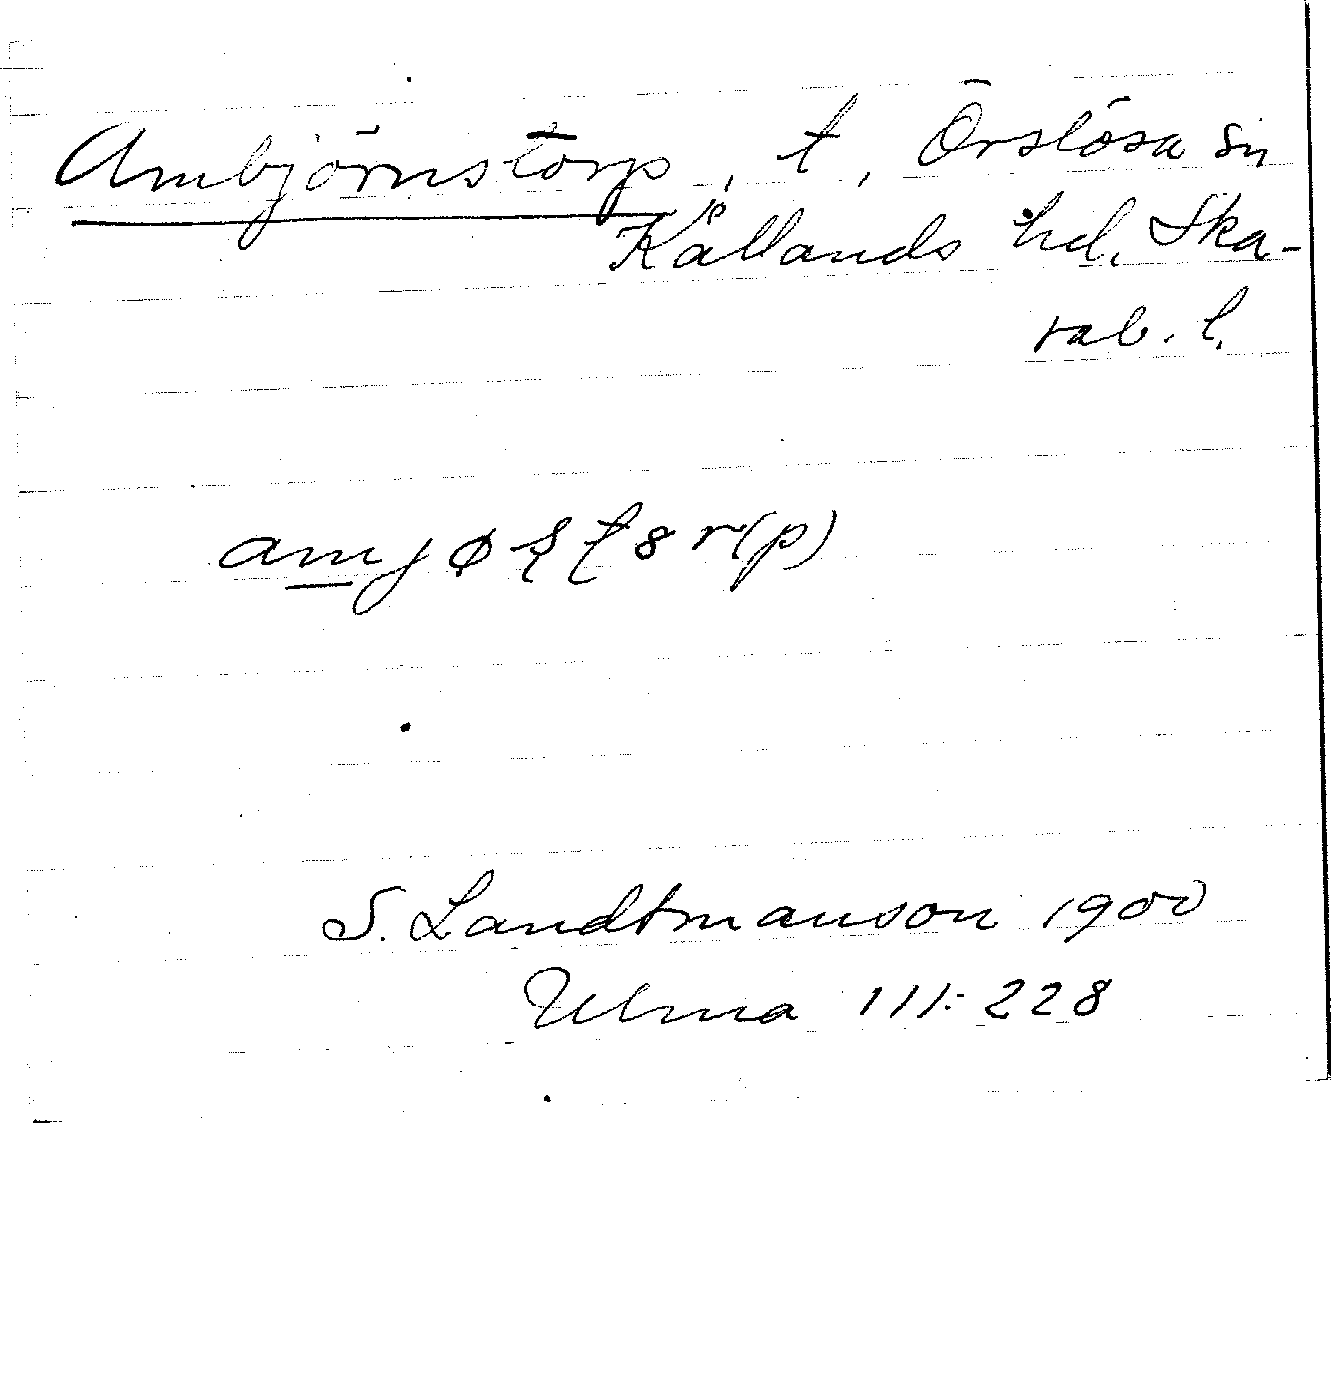 Ambjörnstorp, t, Örslösa sn
Kållands hd, Ska-
rab. l.
S. Landtmanson 1900
Ulma 111:228